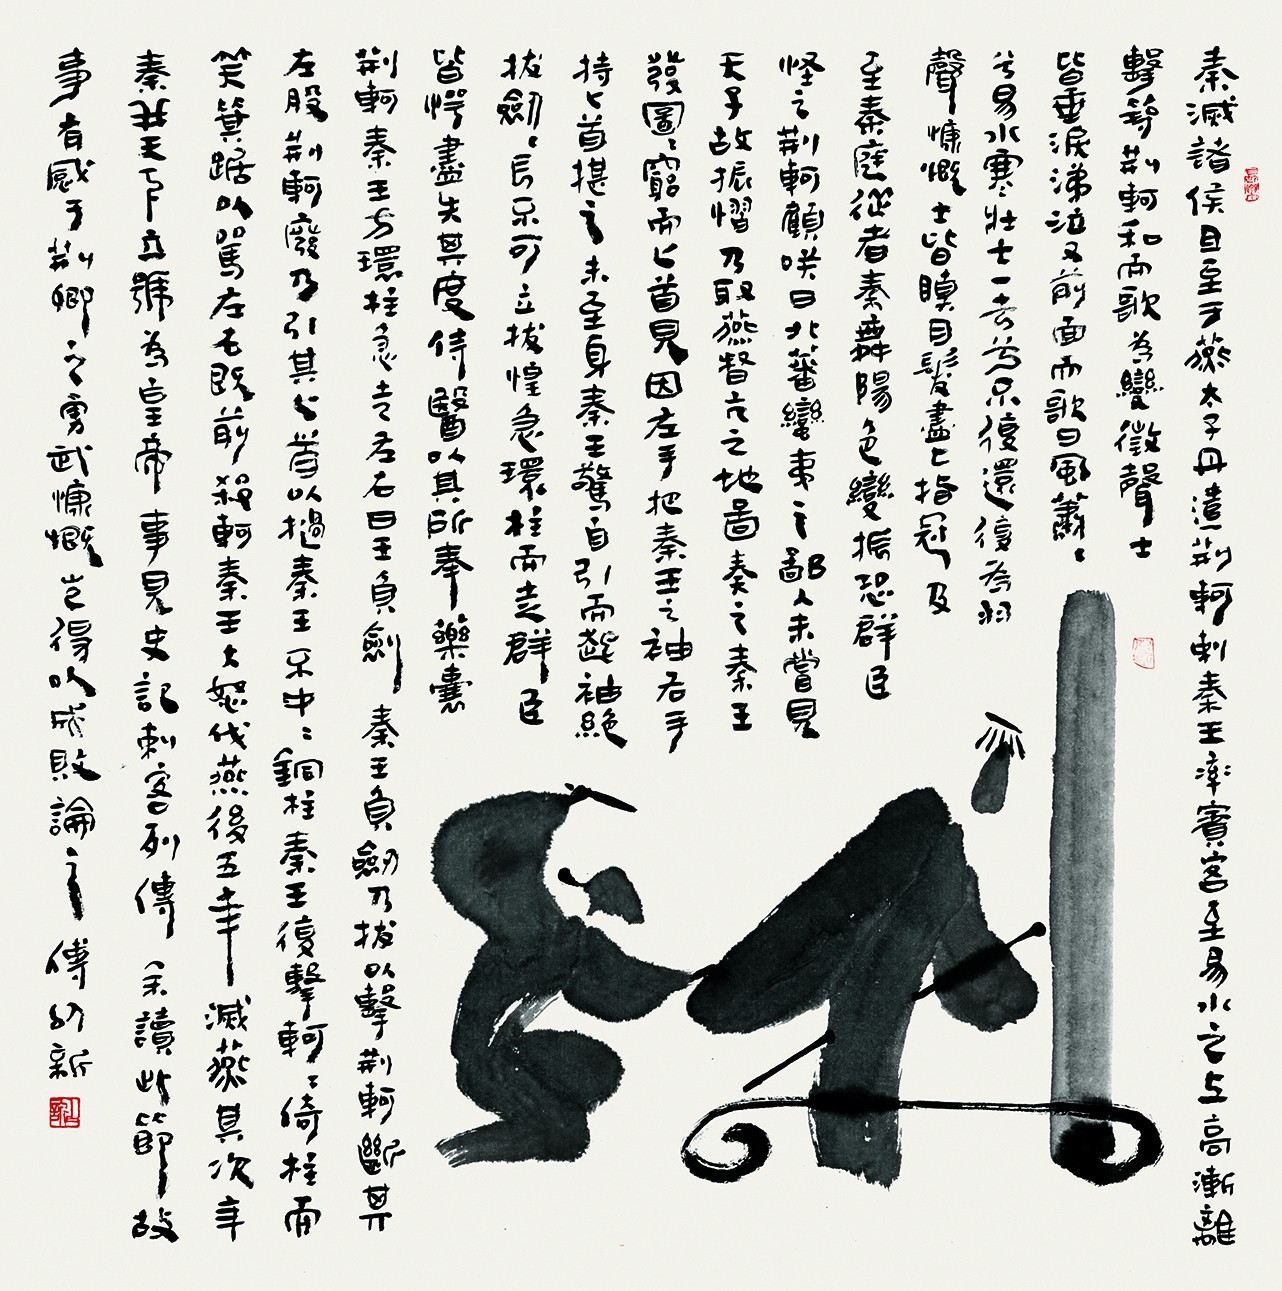 秦滅諸侯且至于燕太子丹遣荊軻刺秦王率賓客至易水之上高漸離
擊筑荊軻和而歌為變徵聲士
皆垂淚涕泣又前面而歌曰風蕭〻
兮易水寒壯士一去兮不復還復為羽
聲慷慨士皆瞋目髮盡上指冠及
至秦庭從者秦舞陽色變振恐群臣
怪之荊軻顧咲曰北蕃蠻夷之鄙人未嘗見
天子故振慴乃取燕督亢之地圖奏之秦王
發圖〻窮而匕首見因左手把秦王之袖右手
持匕首揕之未至身秦王驚自引而起袖絕
拔劍〻長不可立拔惶急環柱而走群臣
皆愕盡失其度侍醫以其所奉藥囊
荊軻秦王方環柱急走左右曰王負劍秦王負劍乃拔以擊荊軻斷其
左股荊軻廢乃引其匕首以擿秦王不中〻銅柱秦王復擊軻〻倚柱而
笑箕踞以罵左右既前殺軻秦王大怒伐燕後五年滅燕其次年
秦并天下立號為皇帝事見史記刺客列傳余讀此節故
事有感于荊卿之勇武慷慨豈得以成敗論之傅幼新